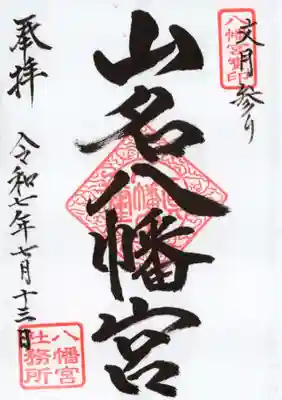 文月参り
八幡宮御印
山名八幡宮
奉拝
令和七年七月十三日
八幡宮
社務所